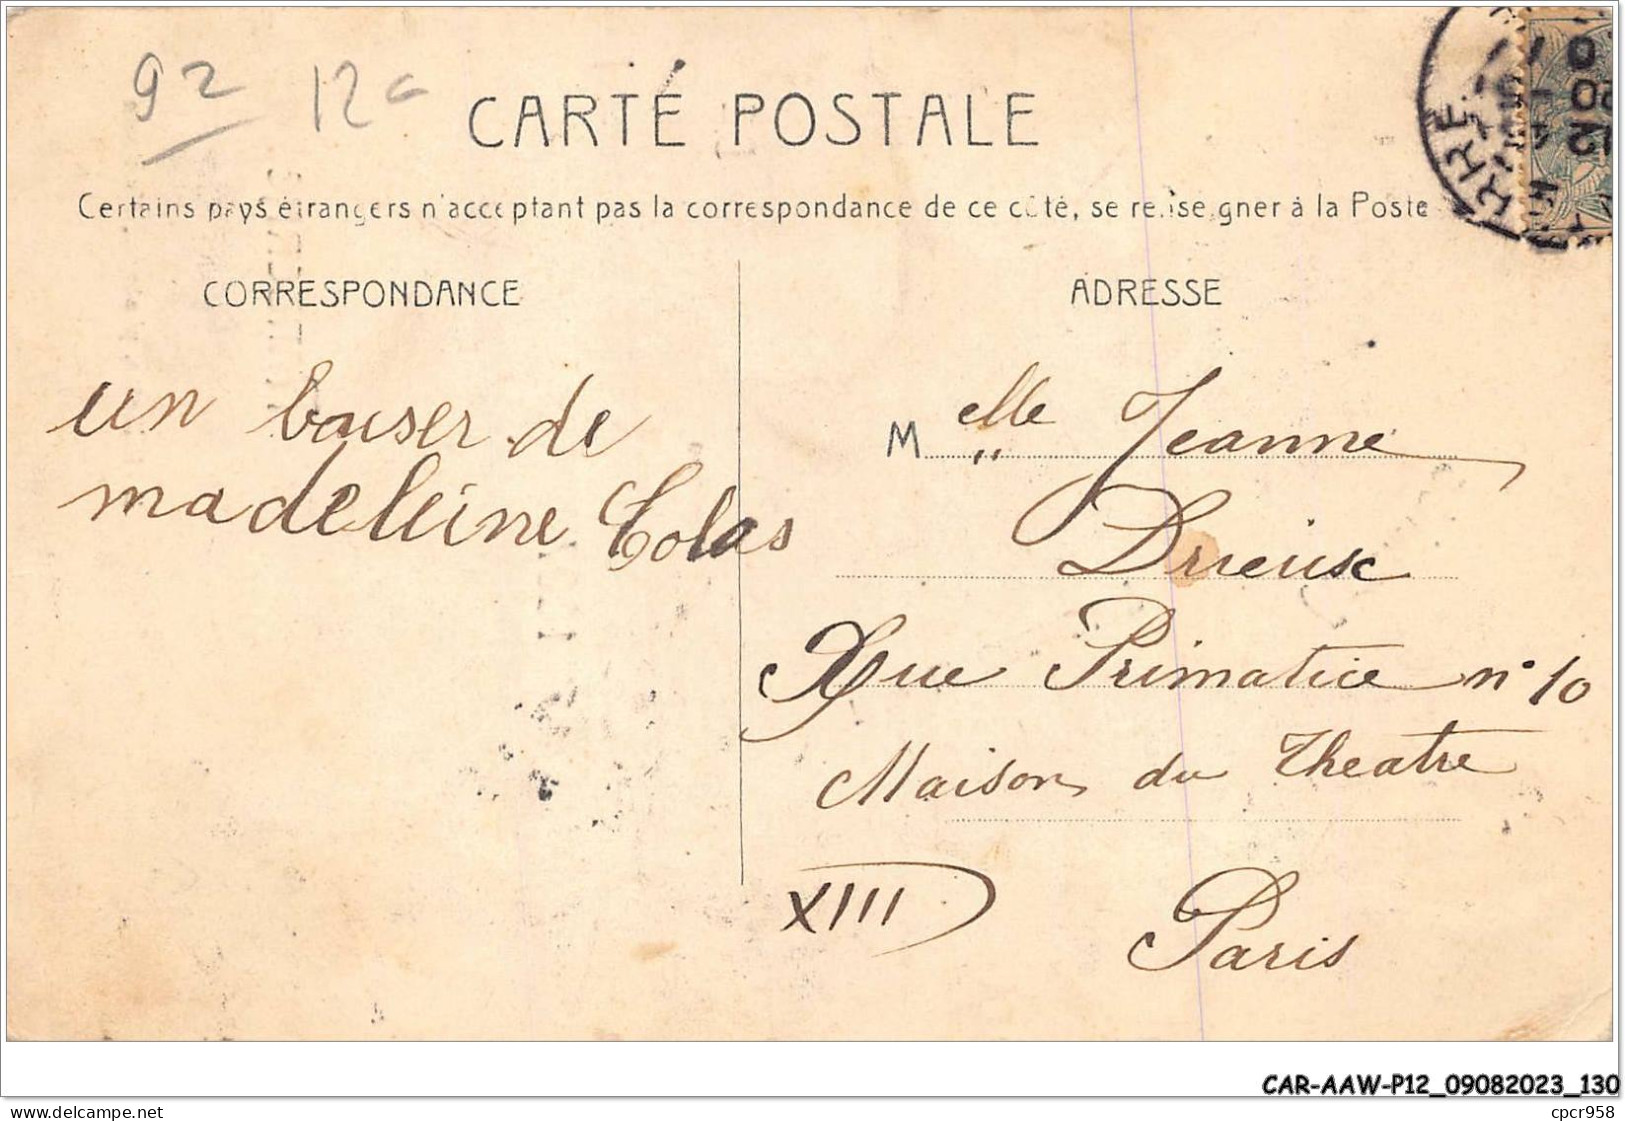 92 12
CARTE POSTALE
Certains pays étrangers n'acceptant pas la correspondance de ce côté, se renseigner à la Poste
CORRESPONDANCE
un baiser de
madeleine Colas
ADRESSE
Melle Jeanne
Drieux
Rue Primatice n° 10
Maison du Theatre
XIII
Paris
CAR-AAW-P12_09082023_130
www.delcampe.net
cpcr958